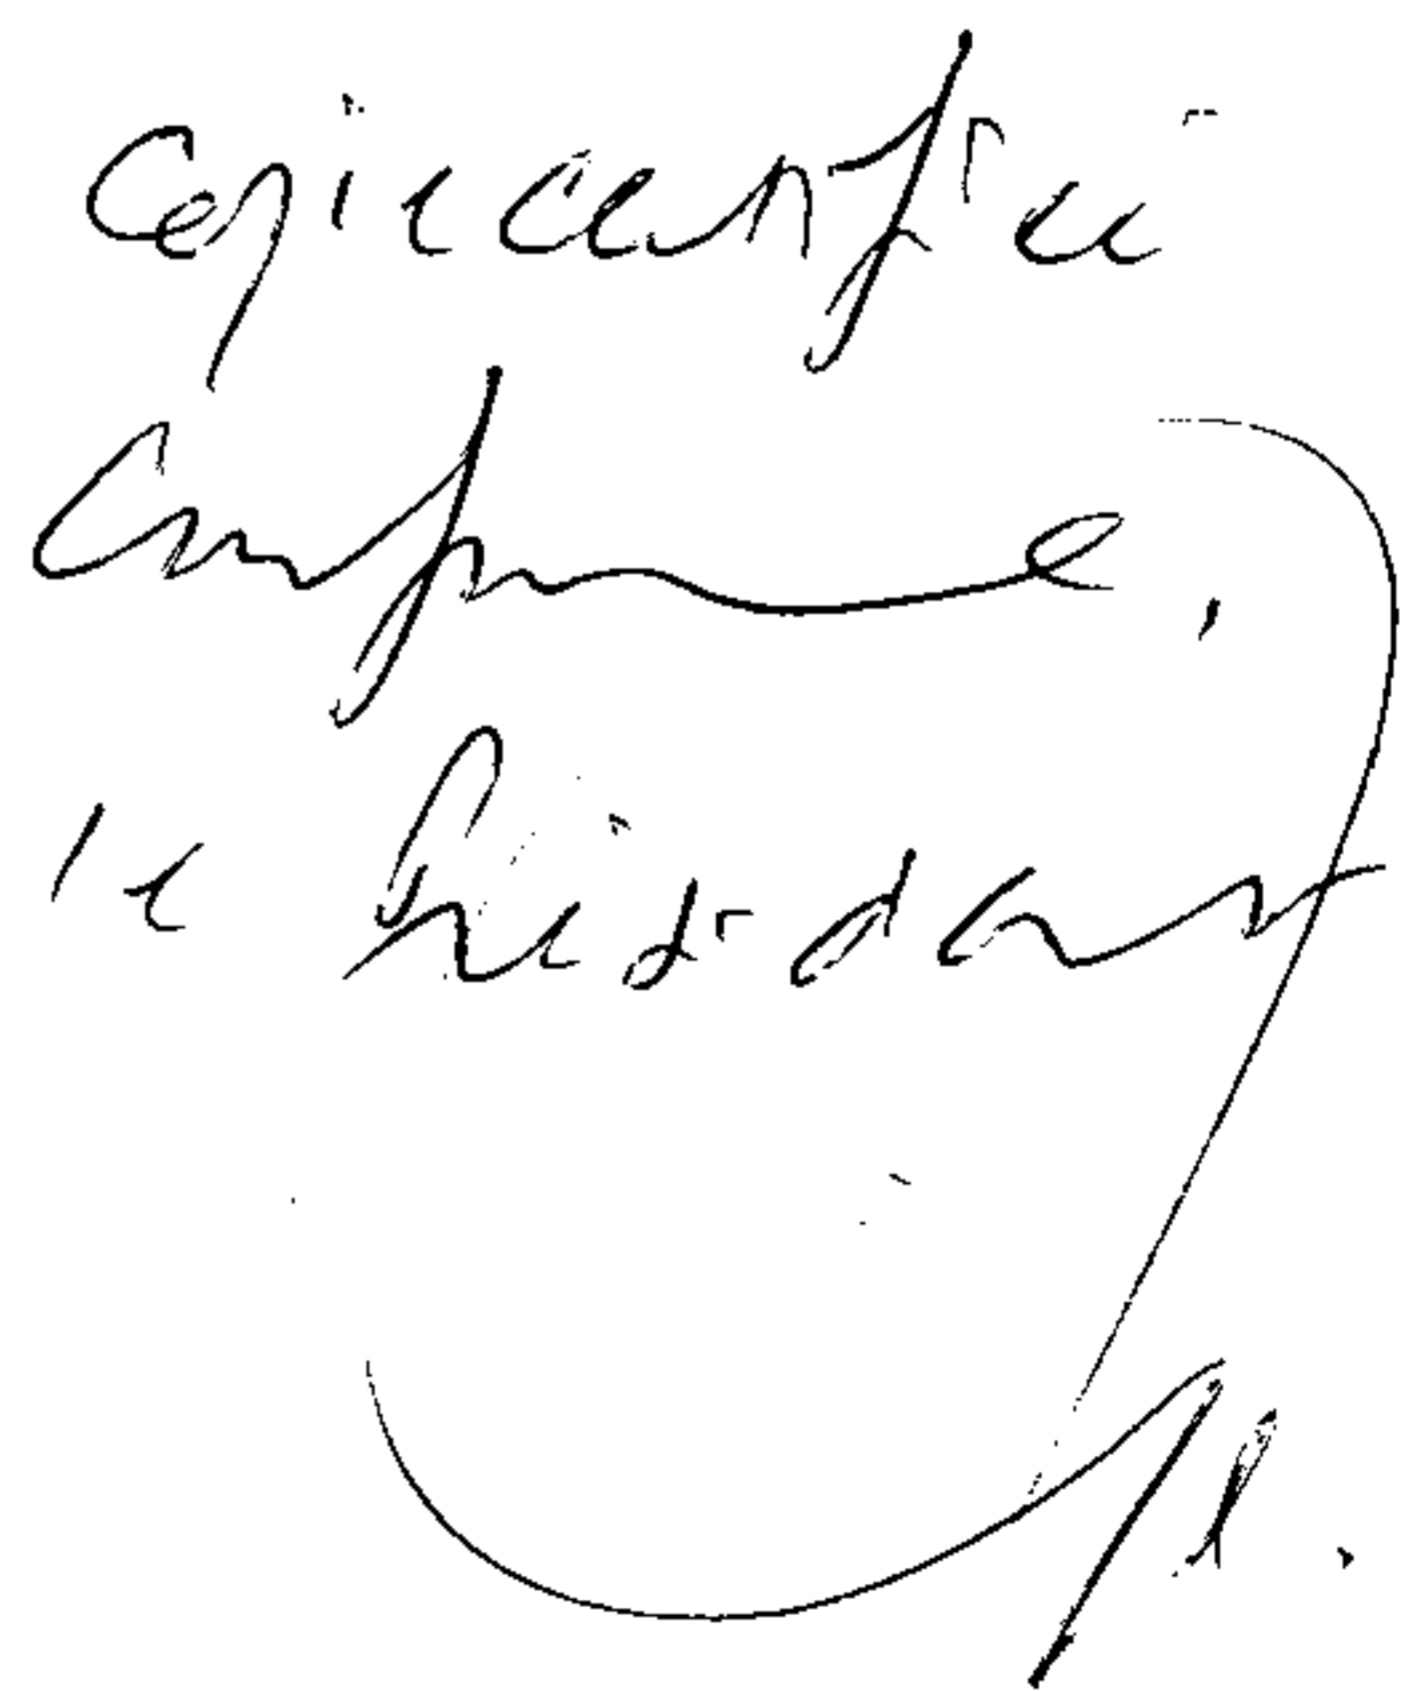 Copie certifiée
Conforme,
le Président